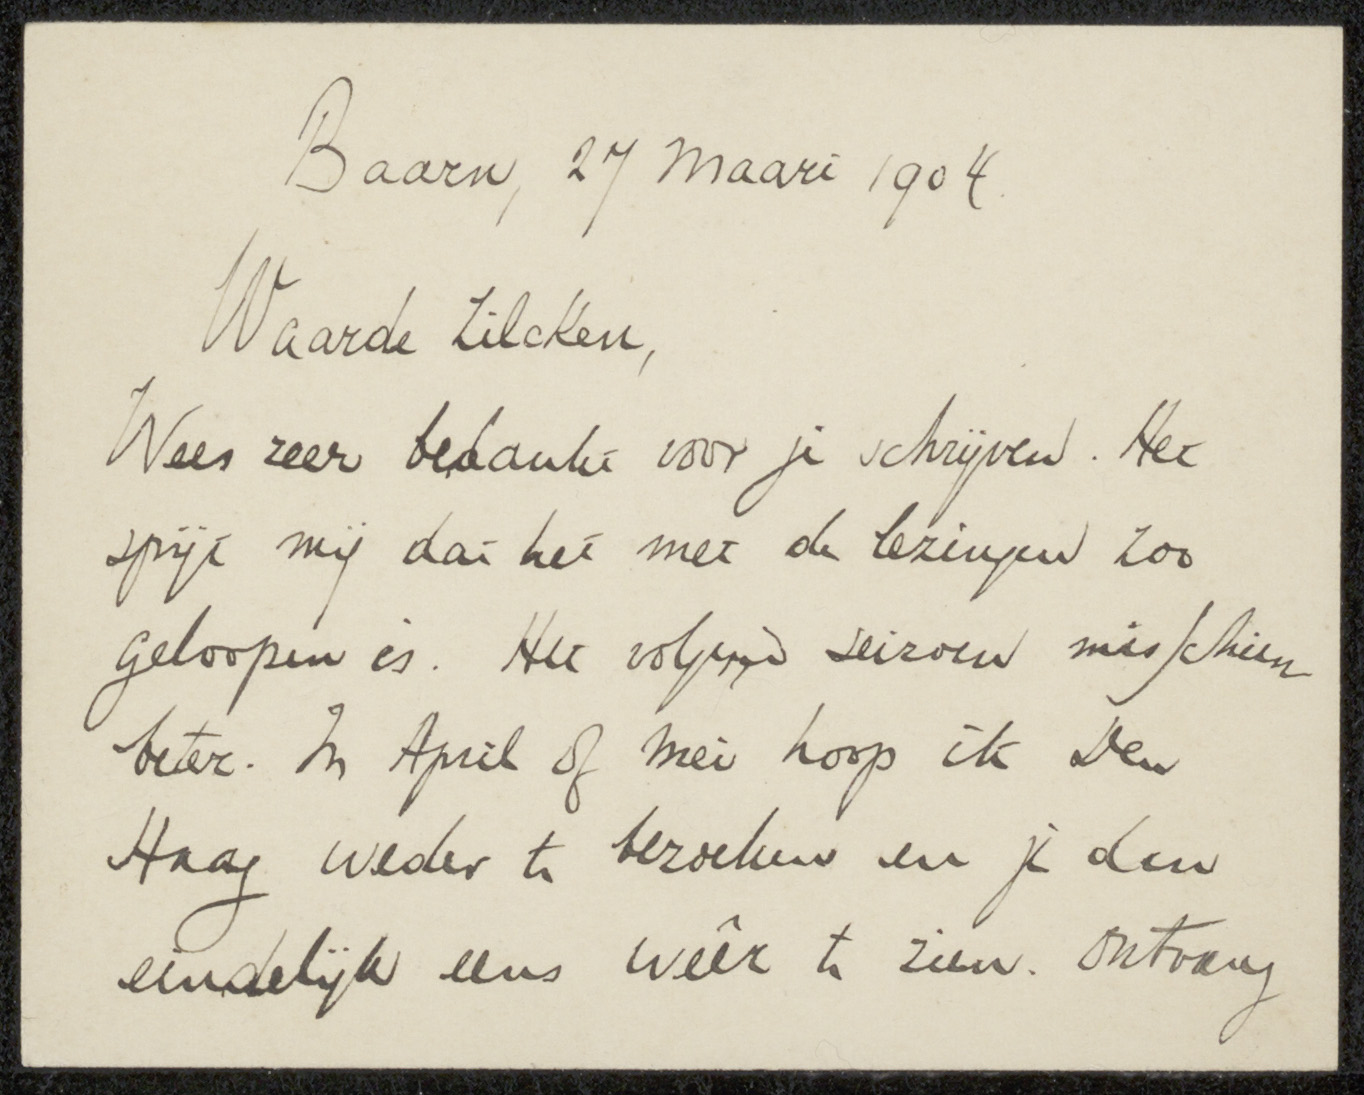 Baarn, 27 Maart 1904.
Waarde Zilcken,
Wees zeer bedankt voor je schrijven. Het
spijt mij dat het met de lezingen zoo
geloopen is. Het volgend seizoen misschien
beter. In April of Mei hoop ik Den
Haag weder te bezoeken en je dan
eindelijk eens wêêr te zien. Ontvang